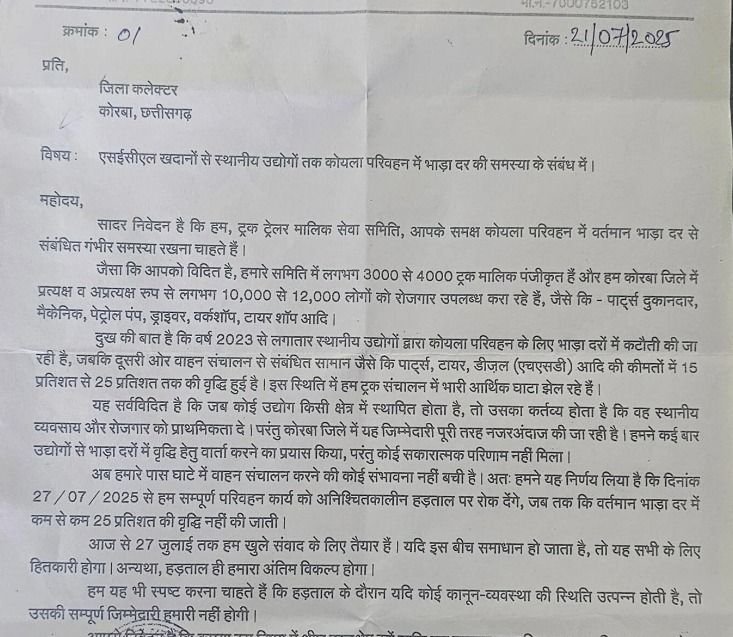 मो.नं.-7000752103
क्रमांक : 01
दिनांक : 21/07/2025
प्रति,
जिला कलेक्टर
कोरबा, छत्तीसगढ़
विषय : एसईसीएल खदानों से स्थानीय उद्योगों तक कोयला परिवहन में भाड़ा दर की समस्या के संबंध में।
महोदय,
सादर निवेदन है कि हम, ट्रक ट्रेलर मालिक सेवा समिति, आपके समक्ष कोयला परिवहन में वर्तमान भाड़ा दर से
संबंधित गंभीर समस्या रखना चाहते हैं।
जैसा कि आपको विदित है, हमारे समिति में लगभग 3000 से 4000 ट्रक मालिक पंजीकृत हैं और हम कोरबा जिले में
प्रत्यक्ष व अप्रत्यक्ष रुप से लगभग 10,000 से 12,000 लोगों को रोजगार उपलब्ध करा रहे हैं, जैसे कि - पार्ट्स दुकानदार,
मैकेनिक, पेट्रोल पंप, ड्राइवर, वर्कशॉप, टायर शॉप आदि।
दुख की बात है कि वर्ष 2023 से लगातार स्थानीय उद्योगों द्वारा कोयला परिवहन के लिए भाड़ा दरों में कटौती की जा
रही है, जबकि दूसरी ओर वाहन संचालन से संबंधित सामान जैसे कि पार्ट्स, टायर, डीज़ल (एचएसडी) आदि की कीमतों में 15
प्रतिशत से 25 प्रतिशत तक की वृद्धि हुई है। इस स्थिति में हम ट्रक संचालन में भारी आर्थिक घाटा झेल रहे हैं।
यह सर्वविदित है कि जब कोई उद्योग किसी क्षेत्र में स्थापित होता है, तो उसका कर्तव्य होता है कि वह स्थानीय
व्यवसाय और रोजगार को प्राथमिकता दे। परंतु कोरबा जिले में यह जिम्मेदारी पूरी तरह नजरअंदाज की जा रही है। हमने कई बार
उद्योगों से भाड़ा दरों में वृद्धि हेतु वार्ता करने का प्रयास किया, परंतु कोई सकारात्मक परिणाम नहीं मिला।
अब हमारे पास घाटे में वाहन संचालन करने की कोई संभावना नहीं बची है। अतः हमने यह निर्णय लिया है कि दिनांक
27/07/2025 से हम सम्पूर्ण परिवहन कार्य को अनिश्चितकालीन हड़ताल पर रोक देंगे, जब तक कि वर्तमान भाड़ा दर में
कम से कम 25 प्रतिशत की वृद्धि नहीं की जाती।
आज से 27 जुलाई तक हम खुले संवाद के लिए तैयार हैं। यदि इस बीच समाधान हो जाता है, तो यह सभी के लिए
हितकारी होगा। अन्यथा, हड़ताल ही हमारा अंतिम विकल्प होगा।
हम यह भी स्पष्ट करना चाहते हैं कि हड़ताल के दौरान यदि कोई कानून-व्यवस्था की स्थिति उत्पन्न होती है, तो
उसकी सम्पूर्ण जिम्मेद्वारी हमारी नहीं होगी।